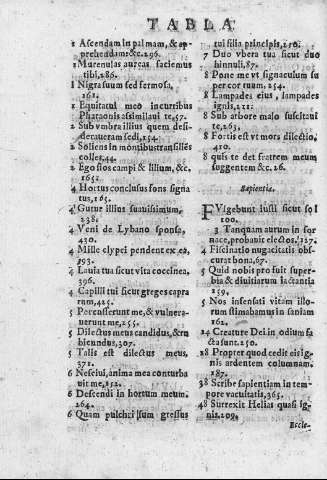 TABLA
1 Ascendam in palmam, & ap
prehendam: &c. 296.
1 Murenulas aureas faciemus
tibi, 286.
1 Nigra sum sed fermosa,
161.
1 Equitatui meo incurtibus
Pharaonis assimilaui te, 57.
2 Sub vmbra illius quem desi-
deraueram sedi, 254.
2 Saliens in montibus transiliẽs
colles, 44.
2 Ego flos campi & lilium, &c.
165.
4 Hortus conclusus fons signa
tus, 165.
4 Gutur illius suauissimum,
238.
4 Veni de Lybano sponsa,
430.
4 Mille clypei pendent ex ea,
193.
4 Lauia tua sicut vita coccinea,
396.
4 Capilli tui sicut greges capra
rum, 425.
5 Percusserunt me, & vulnera-
uerunt me, 255.
5 Dilectus meus candidus, & ru
bicundus, 307.
5 Talis est dilectus meus,
371.
6 Nesciui, anima mea conturba
uit me, 152.
6 Descendi in hortum meum.
264.
6 Quam pulchri sum gressus
tui filia principis, 250.
7 Duo vbera tua sicut duo
hinnuli, 87.
8 Pone me vt signaculum su
per cor tuum, 254.
8 Lampades eius, lampades
ignis, 211.
8 Sub arbore malo suscitaui
te, 263.
8 Fortis est vt mors dilectio,
410.
8 quis te det fratrem meum
suggentem &c. 26.
Sapientia.
FVlgebunt iusti sicut sol
100.
3 Tanquam aurum in for
nace, probauit electos, 127.
4 Fascinatio nugacitatis obs-
curat bona, 67.
5 Quid nobis profuit super-
bia & diuitiarum iactantia
259.
5 Nos insensati vitam illo-
rum æstimabamus insaniam
162.
14 Creature Dei in odium fa
cta sunt. 250.
18 Propter quod cedit eis ig-
nis ardentem columnam.
187.
38 Scribe sapientiam in tem-
pore vacuitatis, 365.
48 Surrexit Helias quasi ig-
nis. 209.
Eccle-